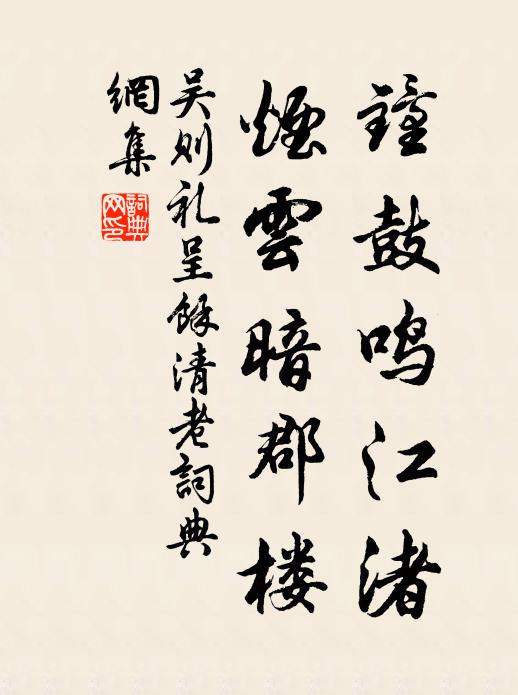 鐘鼓鸣江渚
煙雲暗郡楼
吴则礼呈餘清老詞典
網集
詞典网印